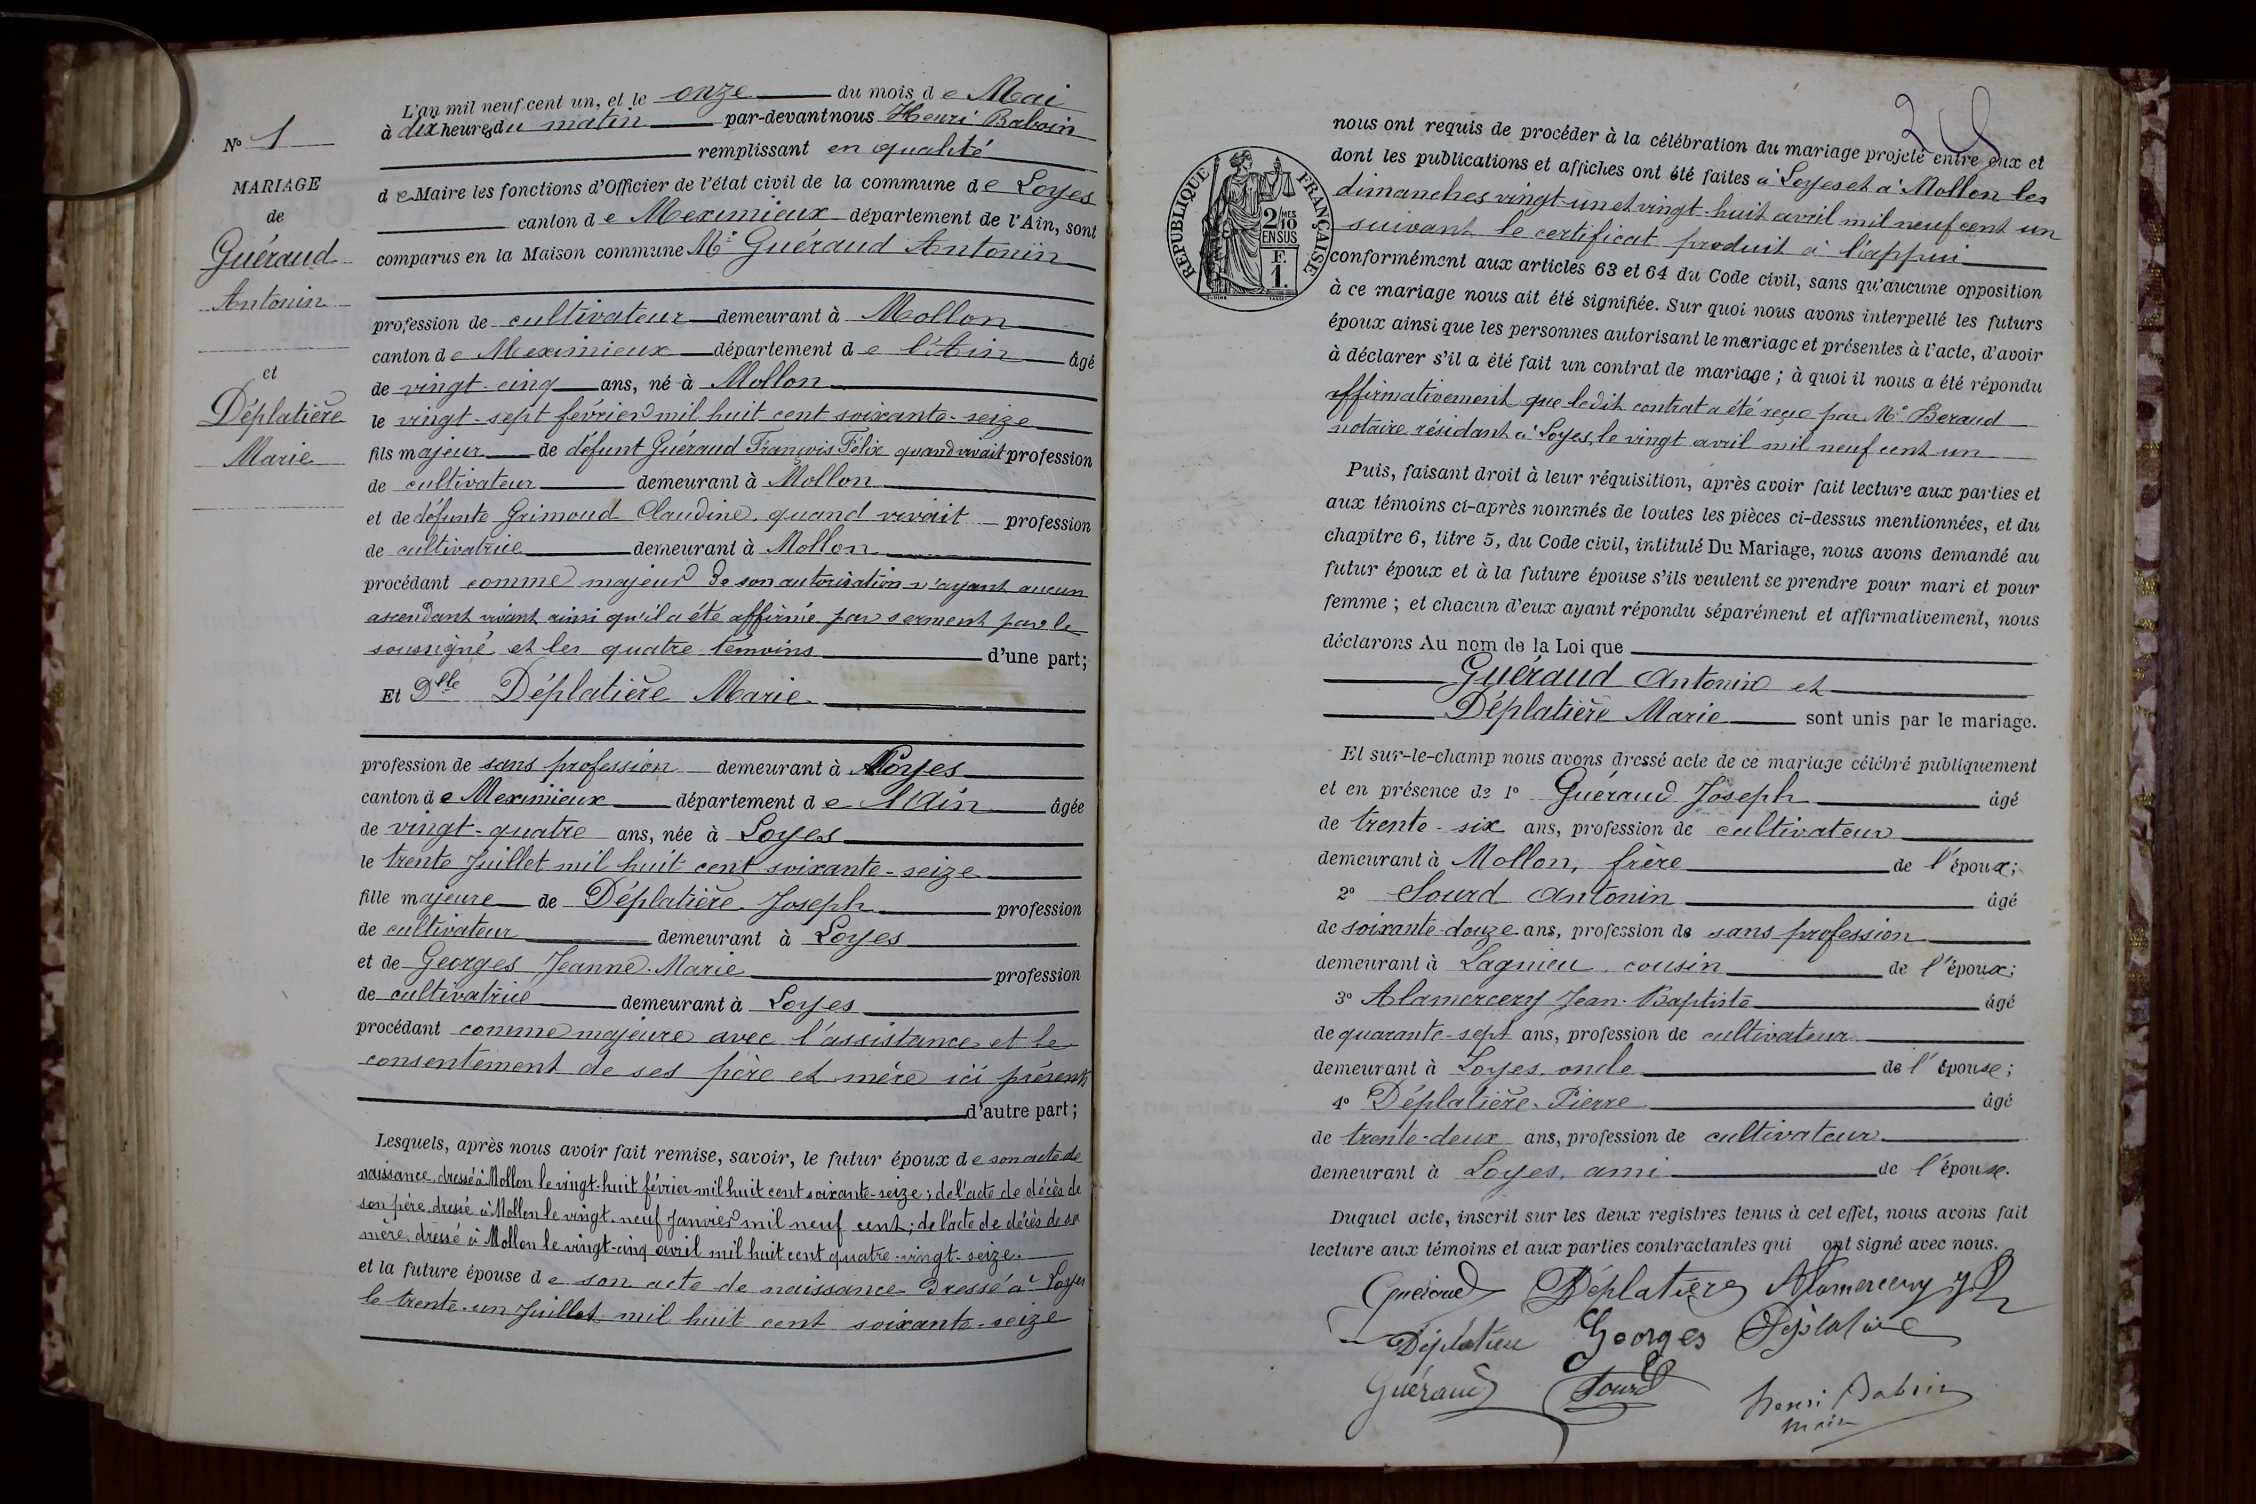 L'an mil neuf cent un, et le onze du mois de Mai
N° 1
à dix heures du matin par-devant nous Henri Baboin
remplissant en qualité
MARIAGE
de Maire les fonctions d'Officier de l'état civil de la commune de Loyes
de
canton de Meximieux département de l'Ain, sont
Guéraud
comparus en la Maison commune Mr Guéraud Antonin
Antonin
profession de cultivateur demeurant à Mollon
canton de Meximieux département de l'Ain âgé
et
de vingt-cinq ans, né à Mollon
Déplatière
le vingt-sept février mil huit cent soixante-seize
Marie
fils majeur de défunt Guéraud François Félix quand vivait profession
de cultivateur demeurant à Mollon
et de défunte Grimoud Claudine, quand vivait profession
de cultivatrice demeurant à Mollon
procédant comme majeur de son autorisation n'ayant aucun
ascendant vivant ainsi qu'il a été affirmé par serment par le
soussigné et les quatre témoins d'une part;
Et Dlle Déplatière Marie
profession de sans profession demeurant à Loyes
canton de Meximieux département de l'Ain âgée
de vingt-quatre ans, née à Loyes
le trente Juillet mil huit cent soixante-seize
fille majeure de Déplatière Joseph profession
de cultivateur demeurant à Loyes
et de Georges Jeanne-Marie profession
de cultivatrice demeurant à Loyes
procédant comme majeure avec l'assistance et le
consentement de ses père et mère ici présents
d'autre part;
Lesquels, après nous avoir fait remise, savoir, le futur époux de son acte de
naissance, dressé à Mollon le vingt-huit février mil huit cent soixante-seize; de l'acte de décès de
son père, dressé à Mollon le vingt-neuf Janvier mil neuf cent; de l'acte de décès de sa
mère, dressé à Mollon le vingt-cinq avril mil huit cent quatre-vingt-seize.
et la future épouse de son acte de naissance dressé à Loyes
le trente-un Juillet mil huit cent soixante-seize
nous ont requis de procéder à la célébration du mariage projeté entre eux et
dont les publications et affiches ont été faites à Loyes et à Mollon les
dimanches vingt-un et vingt-huit avril mil neuf cent un
suivant le certificat produit à l'appui
RÉPUBLIQUE FRANÇAISE
2 MES
10
EN SUS
F.
1.
conformément aux articles 63 et 64 du Code civil, sans qu'aucune opposition
à ce mariage nous ait été signifiée. Sur quoi nous avons interpellé les futurs
époux ainsi que les personnes autorisant le mariage et présentes à l'acte, d'avoir
à déclarer s'il a été fait un contrat de mariage; à quoi il nous a été répondu
affirmativement que ledit contrat a été reçue par Me Beraud
notaire résidant à Loyes, le vingt avril mil neuf cent un
Puis, faisant droit à leur réquisition, après avoir fait lecture aux parties et
aux témoins ci-après nommés de toutes les pièces ci-dessus mentionnées, et du
chapitre 6, titre 5, du Code civil, intitulé Du Mariage, nous avons demandé au
futur époux et à la future épouse s'ils veulent se prendre pour mari et pour
femme; et chacun d'eux ayant répondu séparément et affirmativement, nous
déclarons Au nom de la Loi que
Guéraud Antonin et
Déplatière Marie sont unis par le mariage.
Et sur-le-champ nous avons dressé acte de ce mariage célébré publiquement
et en présence de 1° Guéraud Joseph âgé
de trente-six ans, profession de cultivateur
demeurant à Mollon, frère de l'époux;
2° Sourd Antonin âgé
de soixante-douze ans, profession de sans profession
demeurant à Lagnieu cousin de l'époux;
3° Alamercery Jean-Baptiste âgé
de quarante-sept ans, profession de cultivateur
demeurant à Loyes, oncle de l'épouse;
4° Déplatière Pierre âgé
de trente-deux ans, profession de cultivateur
demeurant à Loyes, ami de l'épouse.
Duquel acte, inscrit sur les deux registres tenus à cet effet, nous avons fait
lecture aux témoins et aux parties contractantes qui ont signé avec nous.
Guéraud Déplatière Alamercery
Déplatière Georges Déplatière
Guéraud Sourd Henri Baboin
Maire